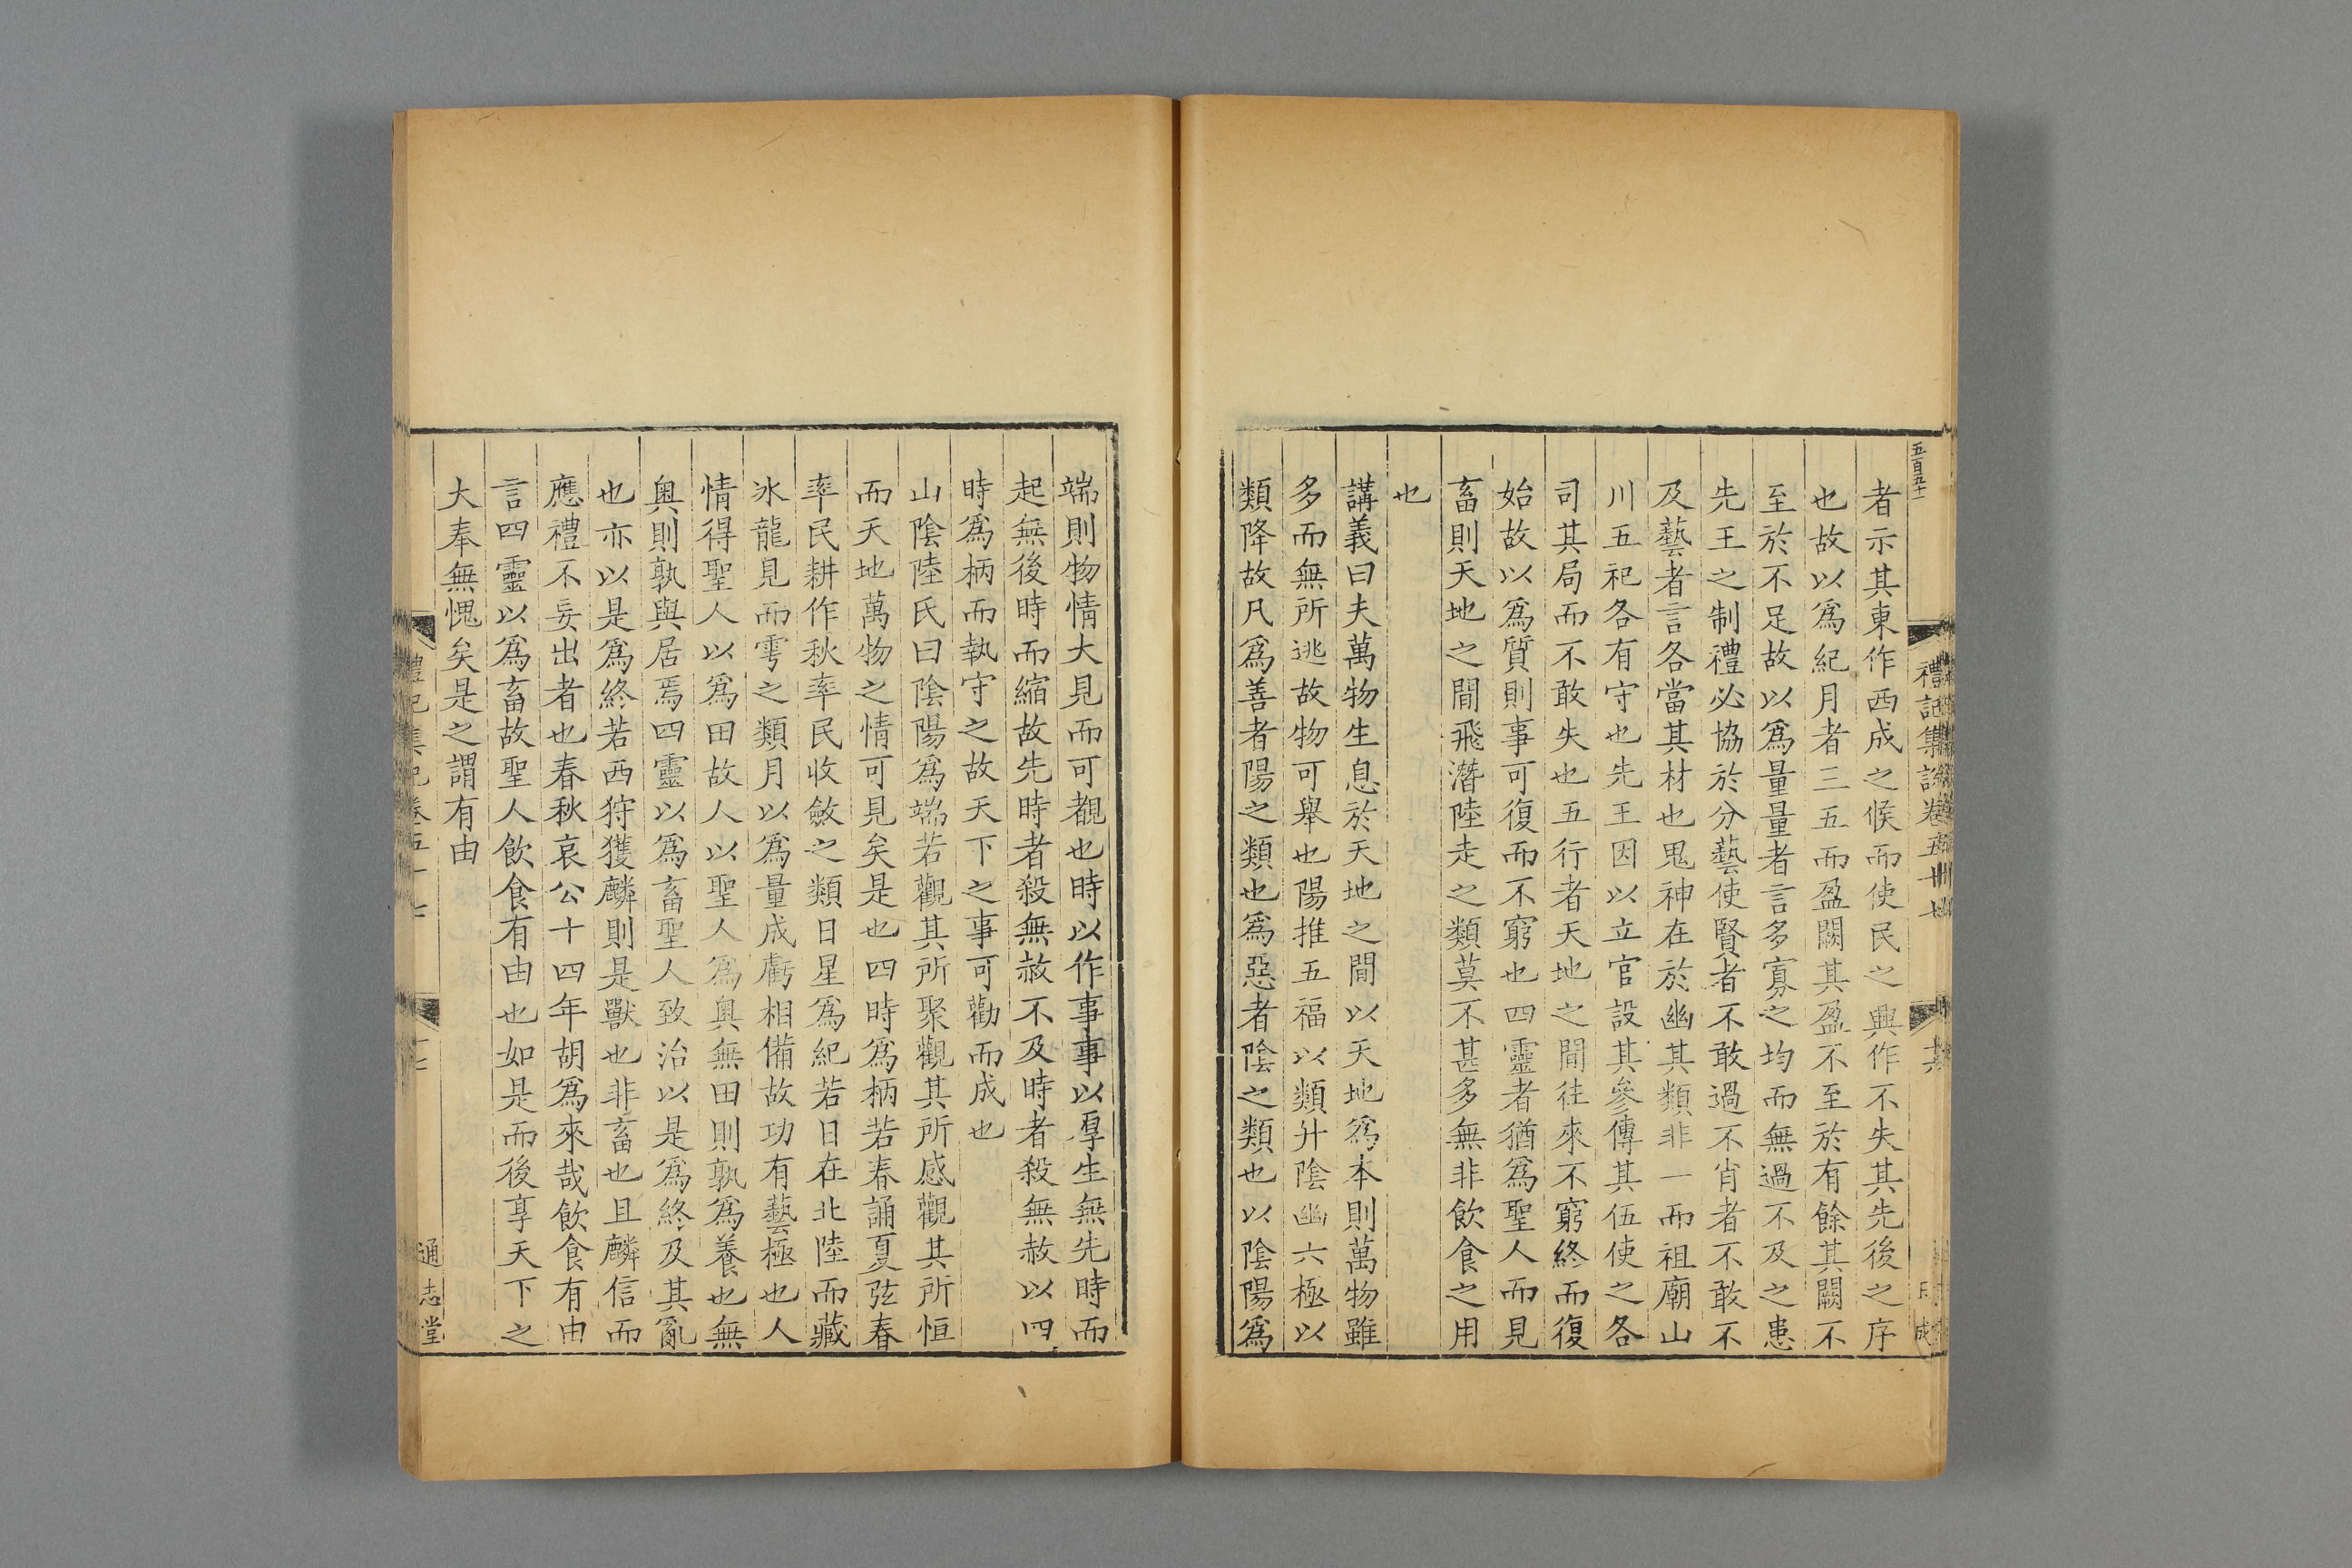 五百五十一
禮記集說卷五十七
者示其東作西成之候而使民之興作不失其先後之序
也故以爲紀月者三五而盈闕其盈不至於有餘其闕不
至於不足故以爲量量者言多寡之均而無過不及之患
先王之制禮必協於分藝使賢者不敢過不肖者不敢不
及藝者言各當其材也鬼神在於幽其類非一而祖廟山
川五祀各有守也先王因以立官設其參傳其伍使之各
司其局而不敢失也五行者天地之間往來不窮終而復
始故以爲質則事可復而不窮也四靈者猶爲聖人而見
畜則天地之間飛潛陸走之類莫不甚多無非飲食之用
也
講義曰夫萬物生息於天地之間以天地爲本則萬物雖
多而無所逃故物可舉也陽推五福以類升陰幽六極以
類降故凡爲善者陽之類也爲惡者陰之類也以陰陽爲
端則物情大見而可覩也時以作事事以厚生無先時而
起無後時而縮故先時者殺無赦不及時者殺無赦以四
時爲柄而執守之故天下之事可勸而成也
山陰陸氏曰陰陽爲端若觀其所聚觀其所感觀其所恒
而天地萬物之情可見矣是也四時爲柄若春誦夏弦春
率民耕作秋率民收斂之類日星爲紀若日在北陸而藏
冰龍見而雩之類月以爲量成虧相備故功有藝極也人
情得聖人以爲田故人以聖人爲奧無田則孰爲養也無
奧則孰與居焉四靈以爲畜聖人致治以是爲終及其亂
也亦以是爲終若西狩獲麟則是獸也非畜也且麟信而
應禮不妄出者也春秋哀公十四年胡爲來哉飲食有由
言四靈以爲畜故聖人飲食有由也如是而後享天下之
大奉無愧矣是之謂有由
通志堂